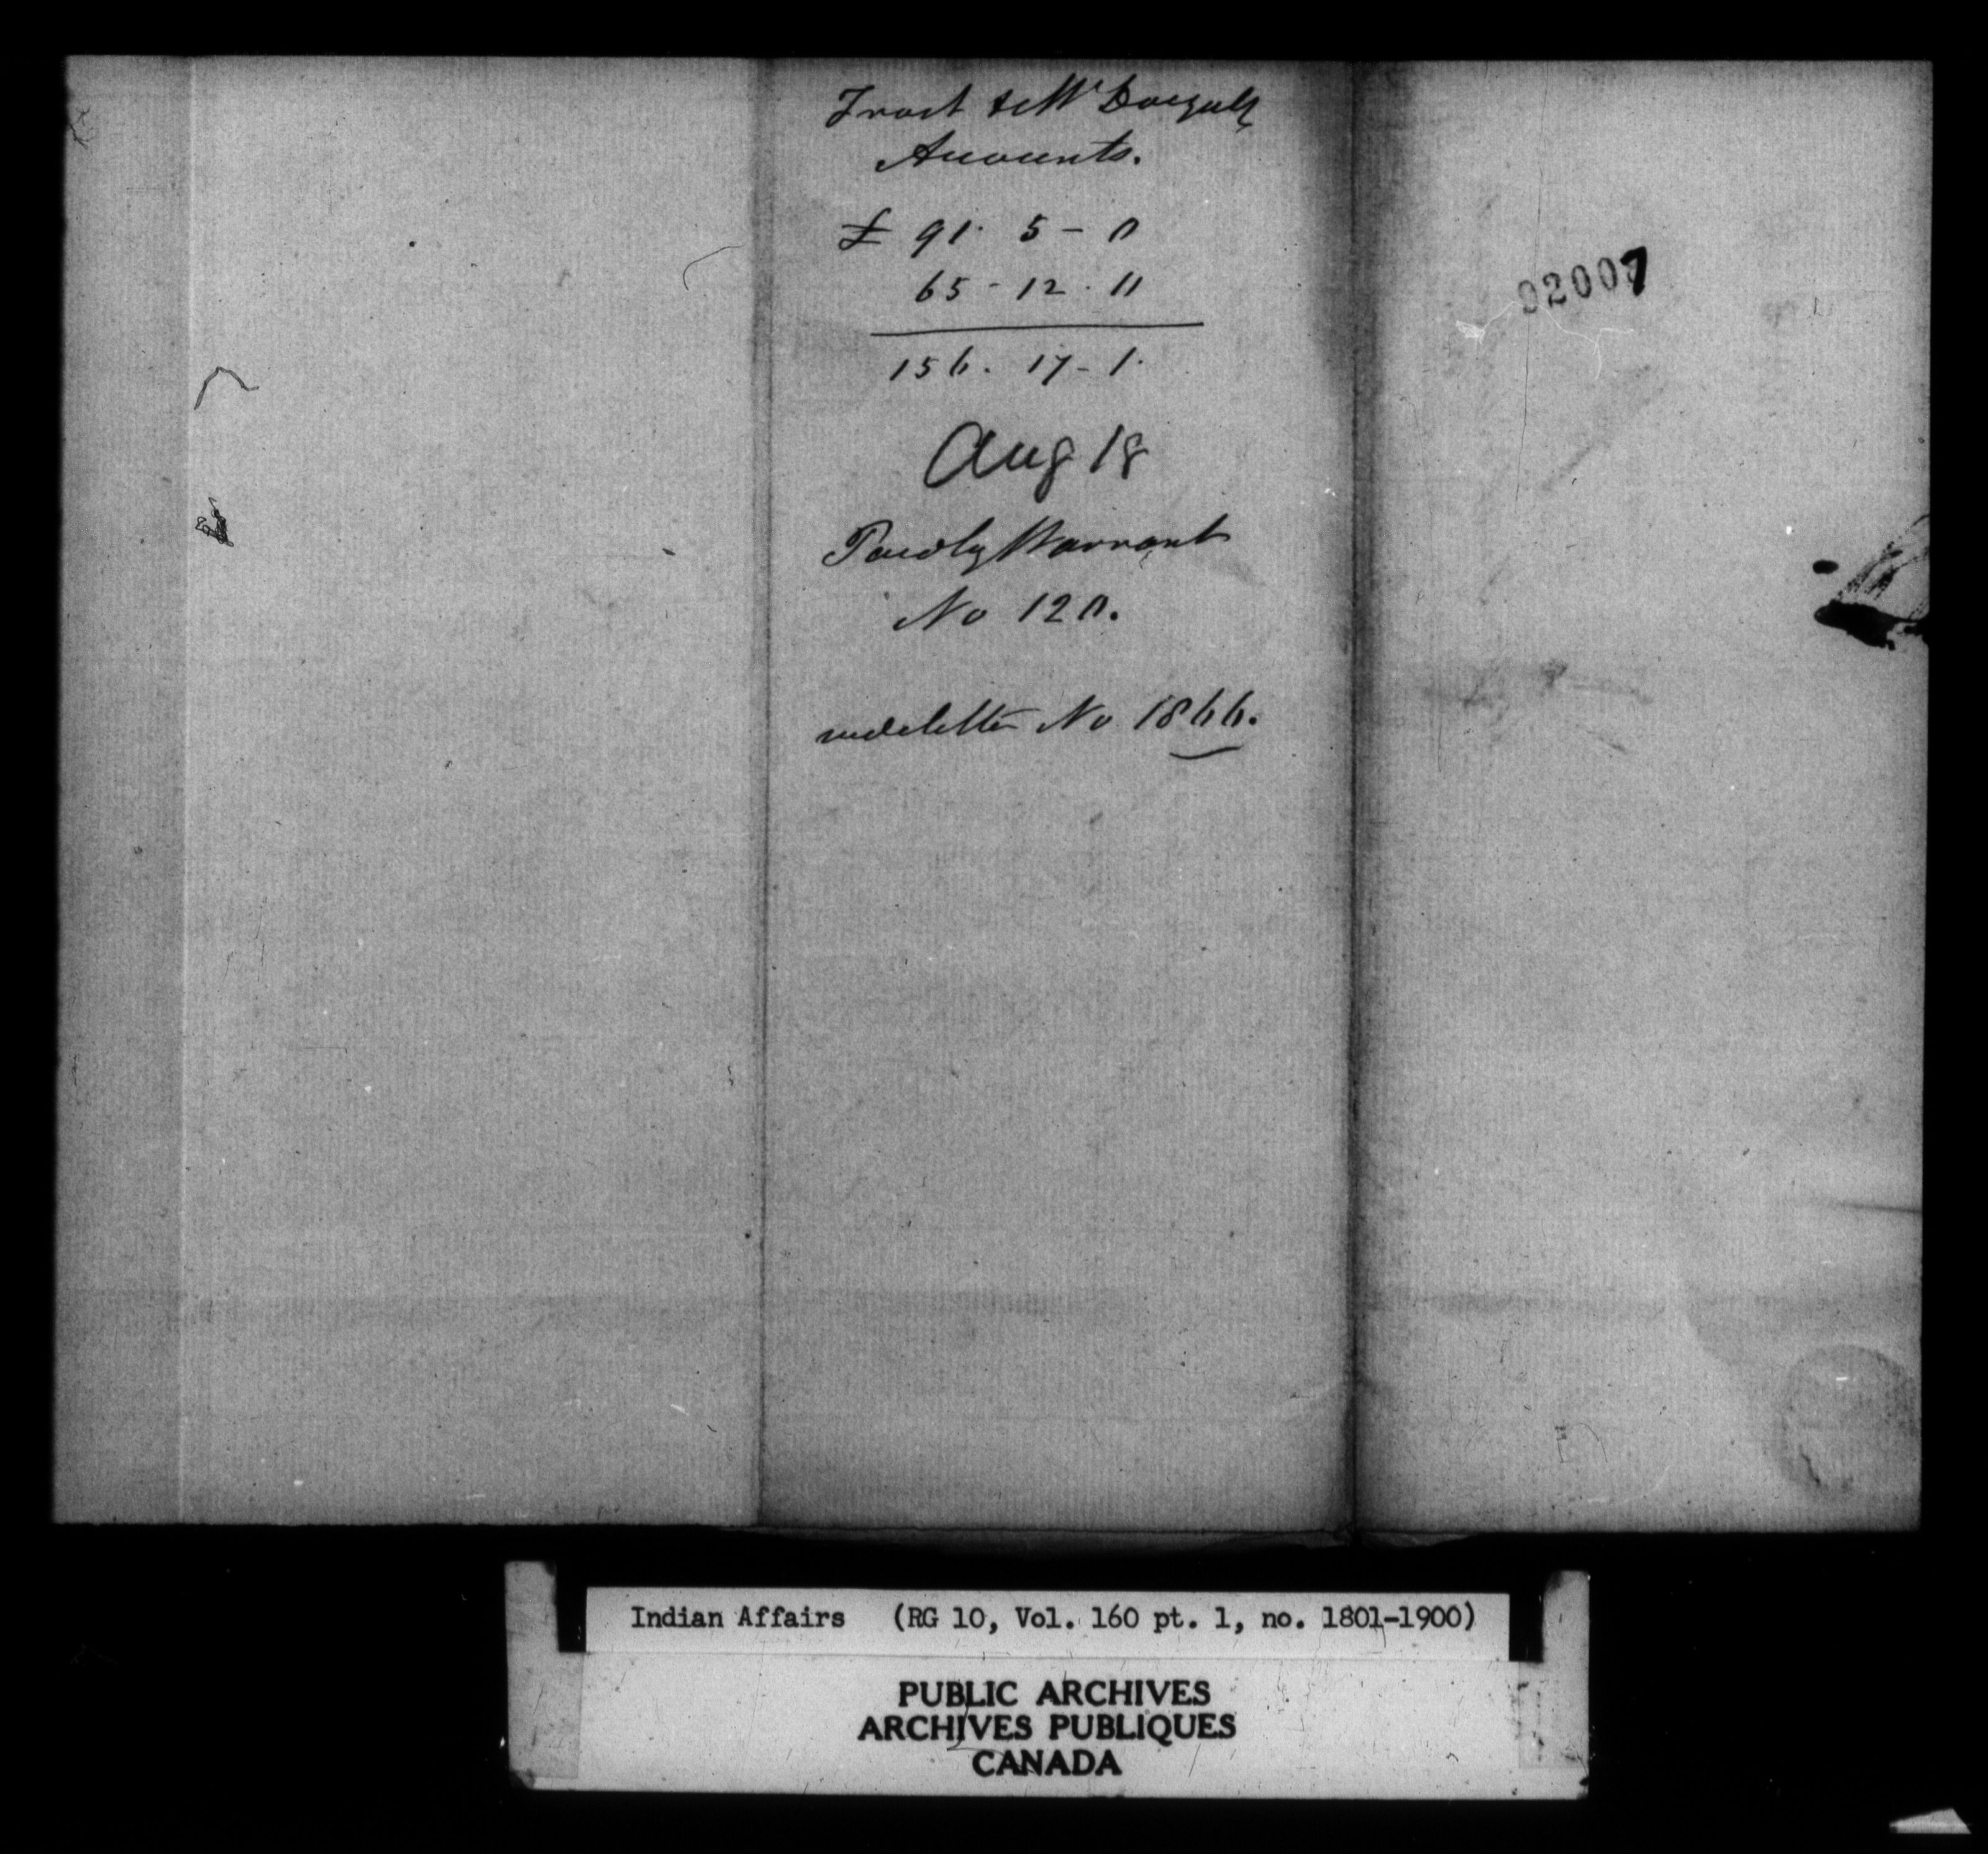 Frost & McDougall
Accounts.
£ 91. 5 - 0
65 - 12 . 11
156. 17 - 1.
Aug 18
Paid by Warrant
No 120.
vide letter No 1866.
02007
Indian Affairs (RG 10, Vol. 160 pt. 1, no. 1801-1900)
PUBLIC ARCHIVES
ARCHIVES PUBLIQUES
CANADA